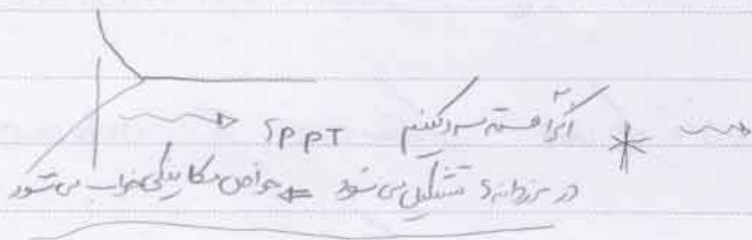 * اگر آهسته سرد کنیم δPPT
در مرزدانه δ تشکیل می شود ⇐ خواص مکانیکی خراب می شود